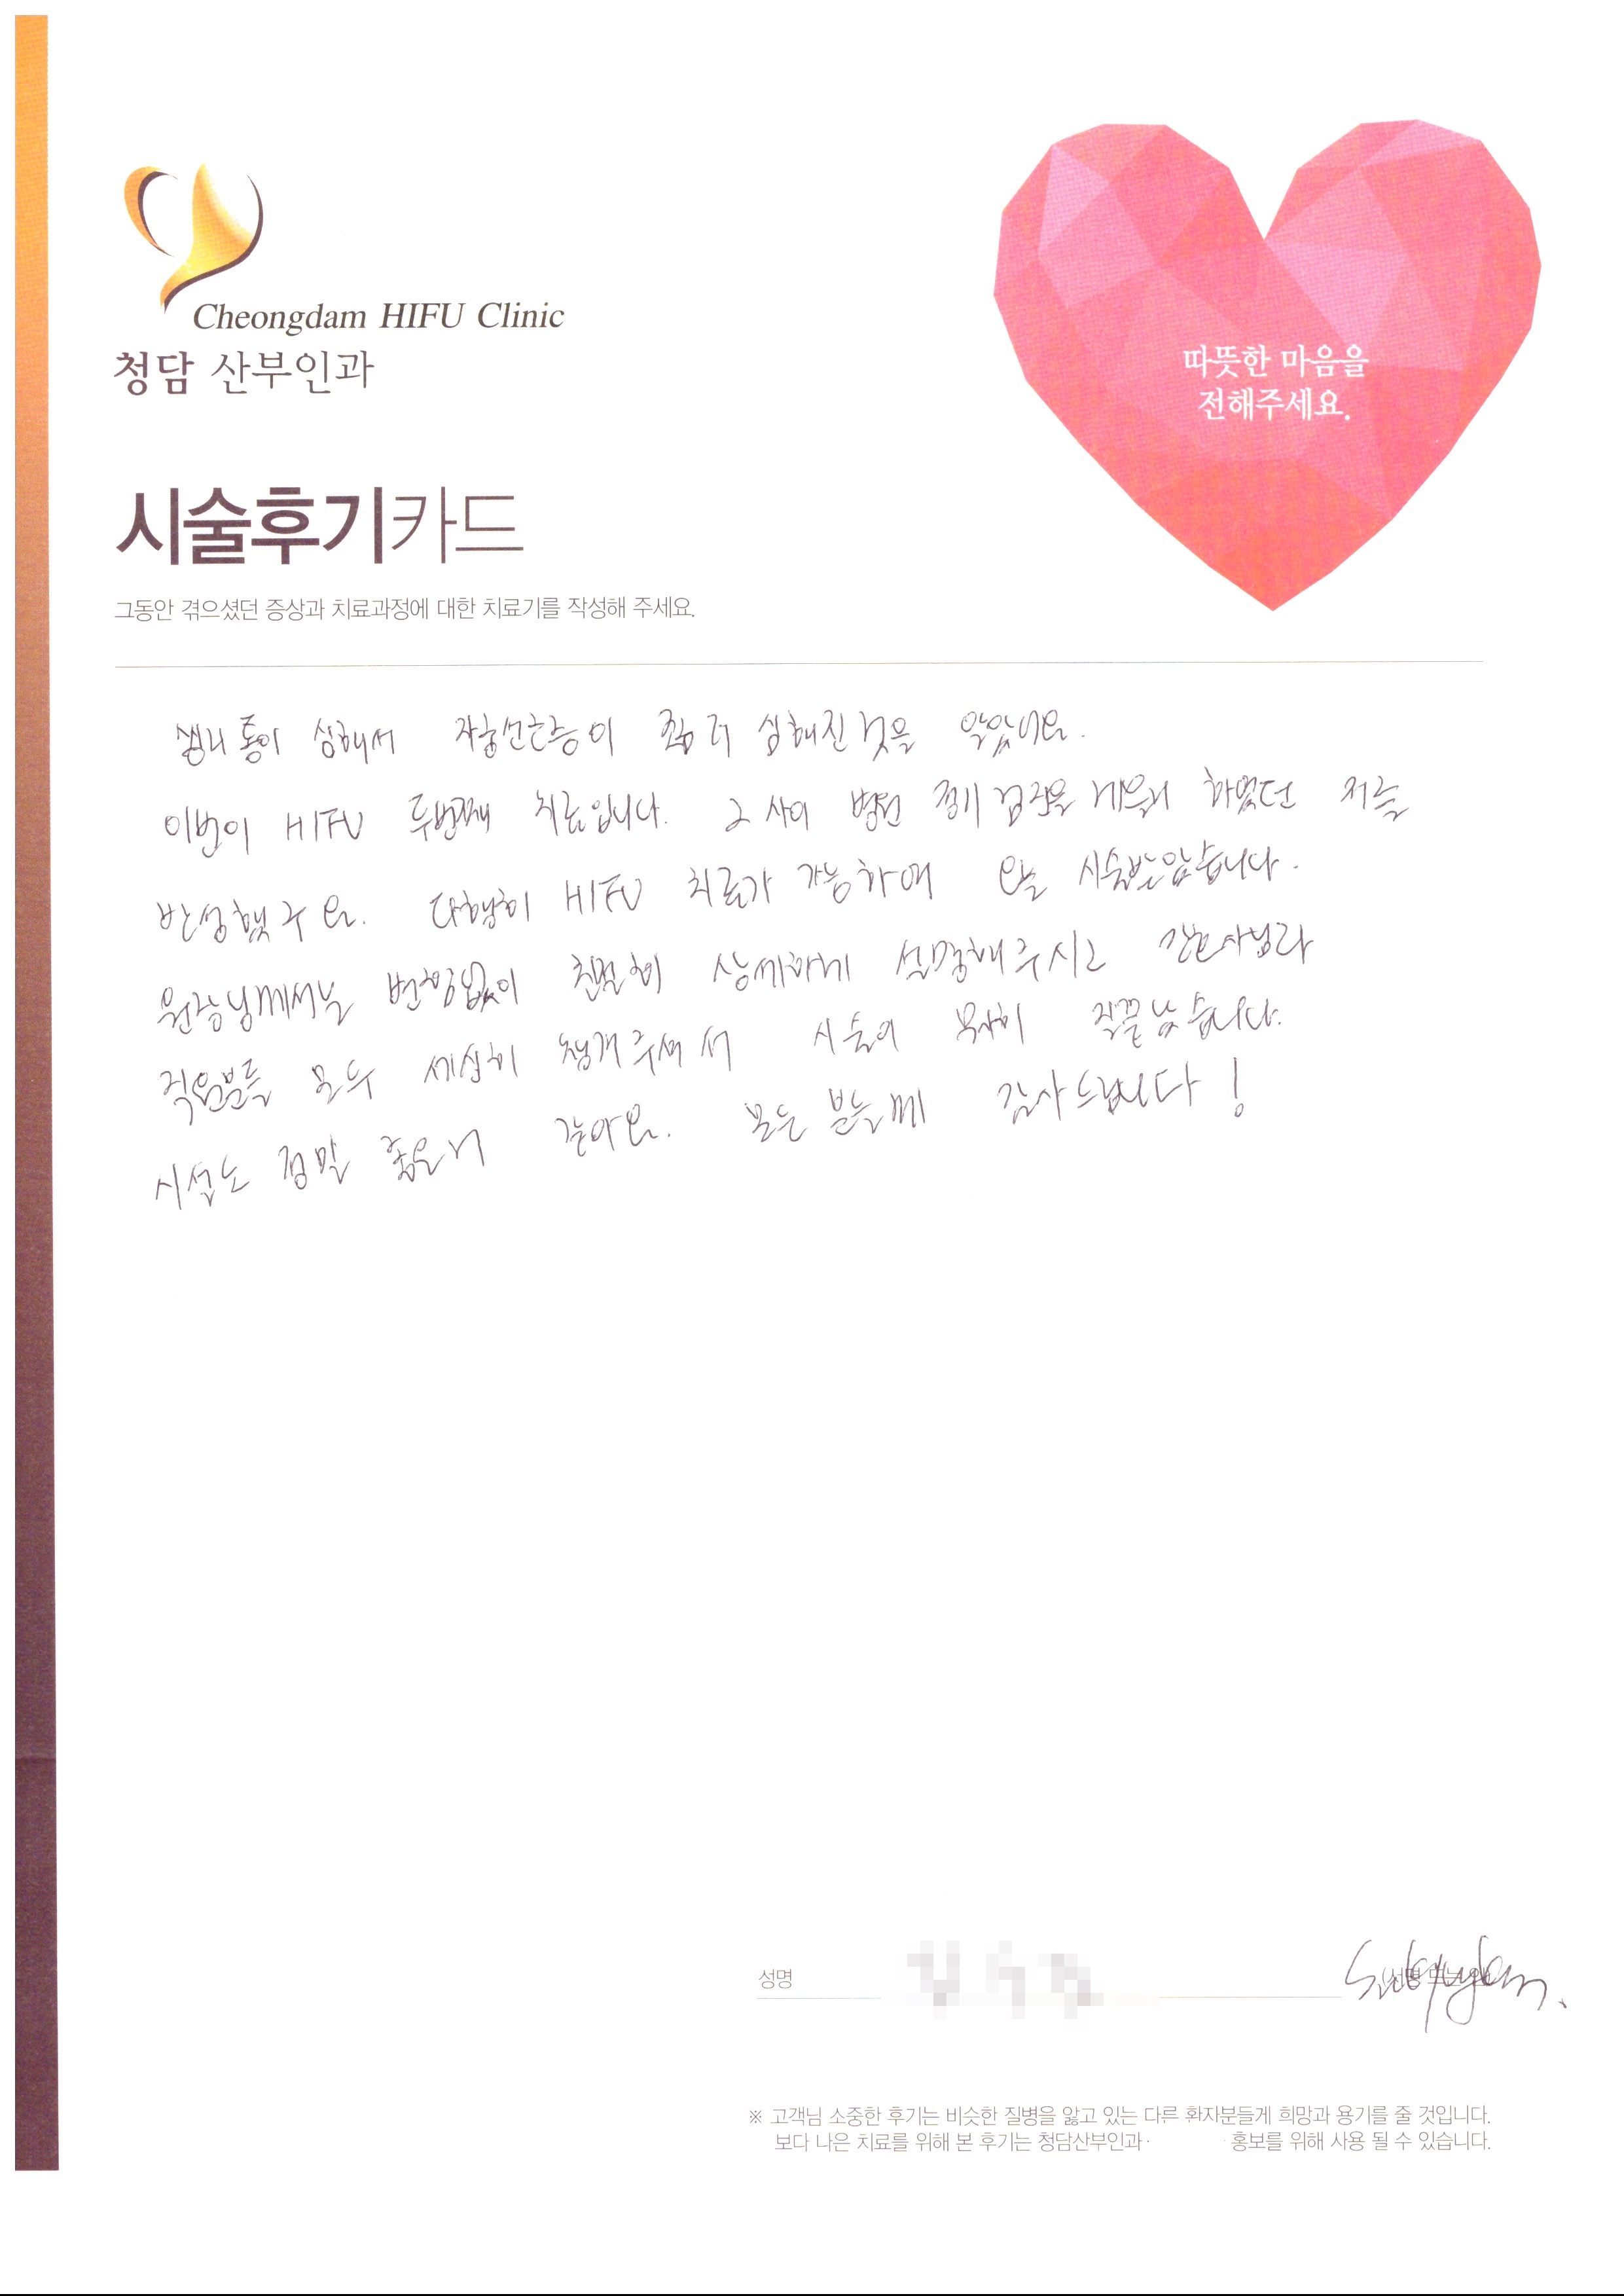 Cheongdam HIFU Clinic
청담 산부인과
따뜻한 마음을
전해주세요.
시술후기카드
그동안 겪으셨던 증상과 치료과정에 대한 치료기를 작성해 주세요.
생리통이 심해서 자궁선근증이 좀 더 심해진 것을 알았어요.
이번이 HIFU 두번째 치료입니다. 그 사이 병원 정기 검진을 게을리 하였던 저를
반성했구요. 다행히 HIFU 치료가 가능하여 오늘 시술받았습니다.
원장님께서는 변함없이 친절히 상세하게 설명해주시고 간호사님과
직원분들 모두 세심히 챙겨주셔서 시술이 무사히 잘 끝났습니다.
시설도 정말 좋은거 같아요. 모든 분들께 감사드립니다!
성명
※ 고객님 소중한 후기는 비슷한 질병을 앓고 있는 다른 환자분들게 희망과 용기를 줄 것입니다.
보다 나은 치료를 위해 본 후기는 청담산부인과· 홍보를 위해 사용 될 수 있습니다.